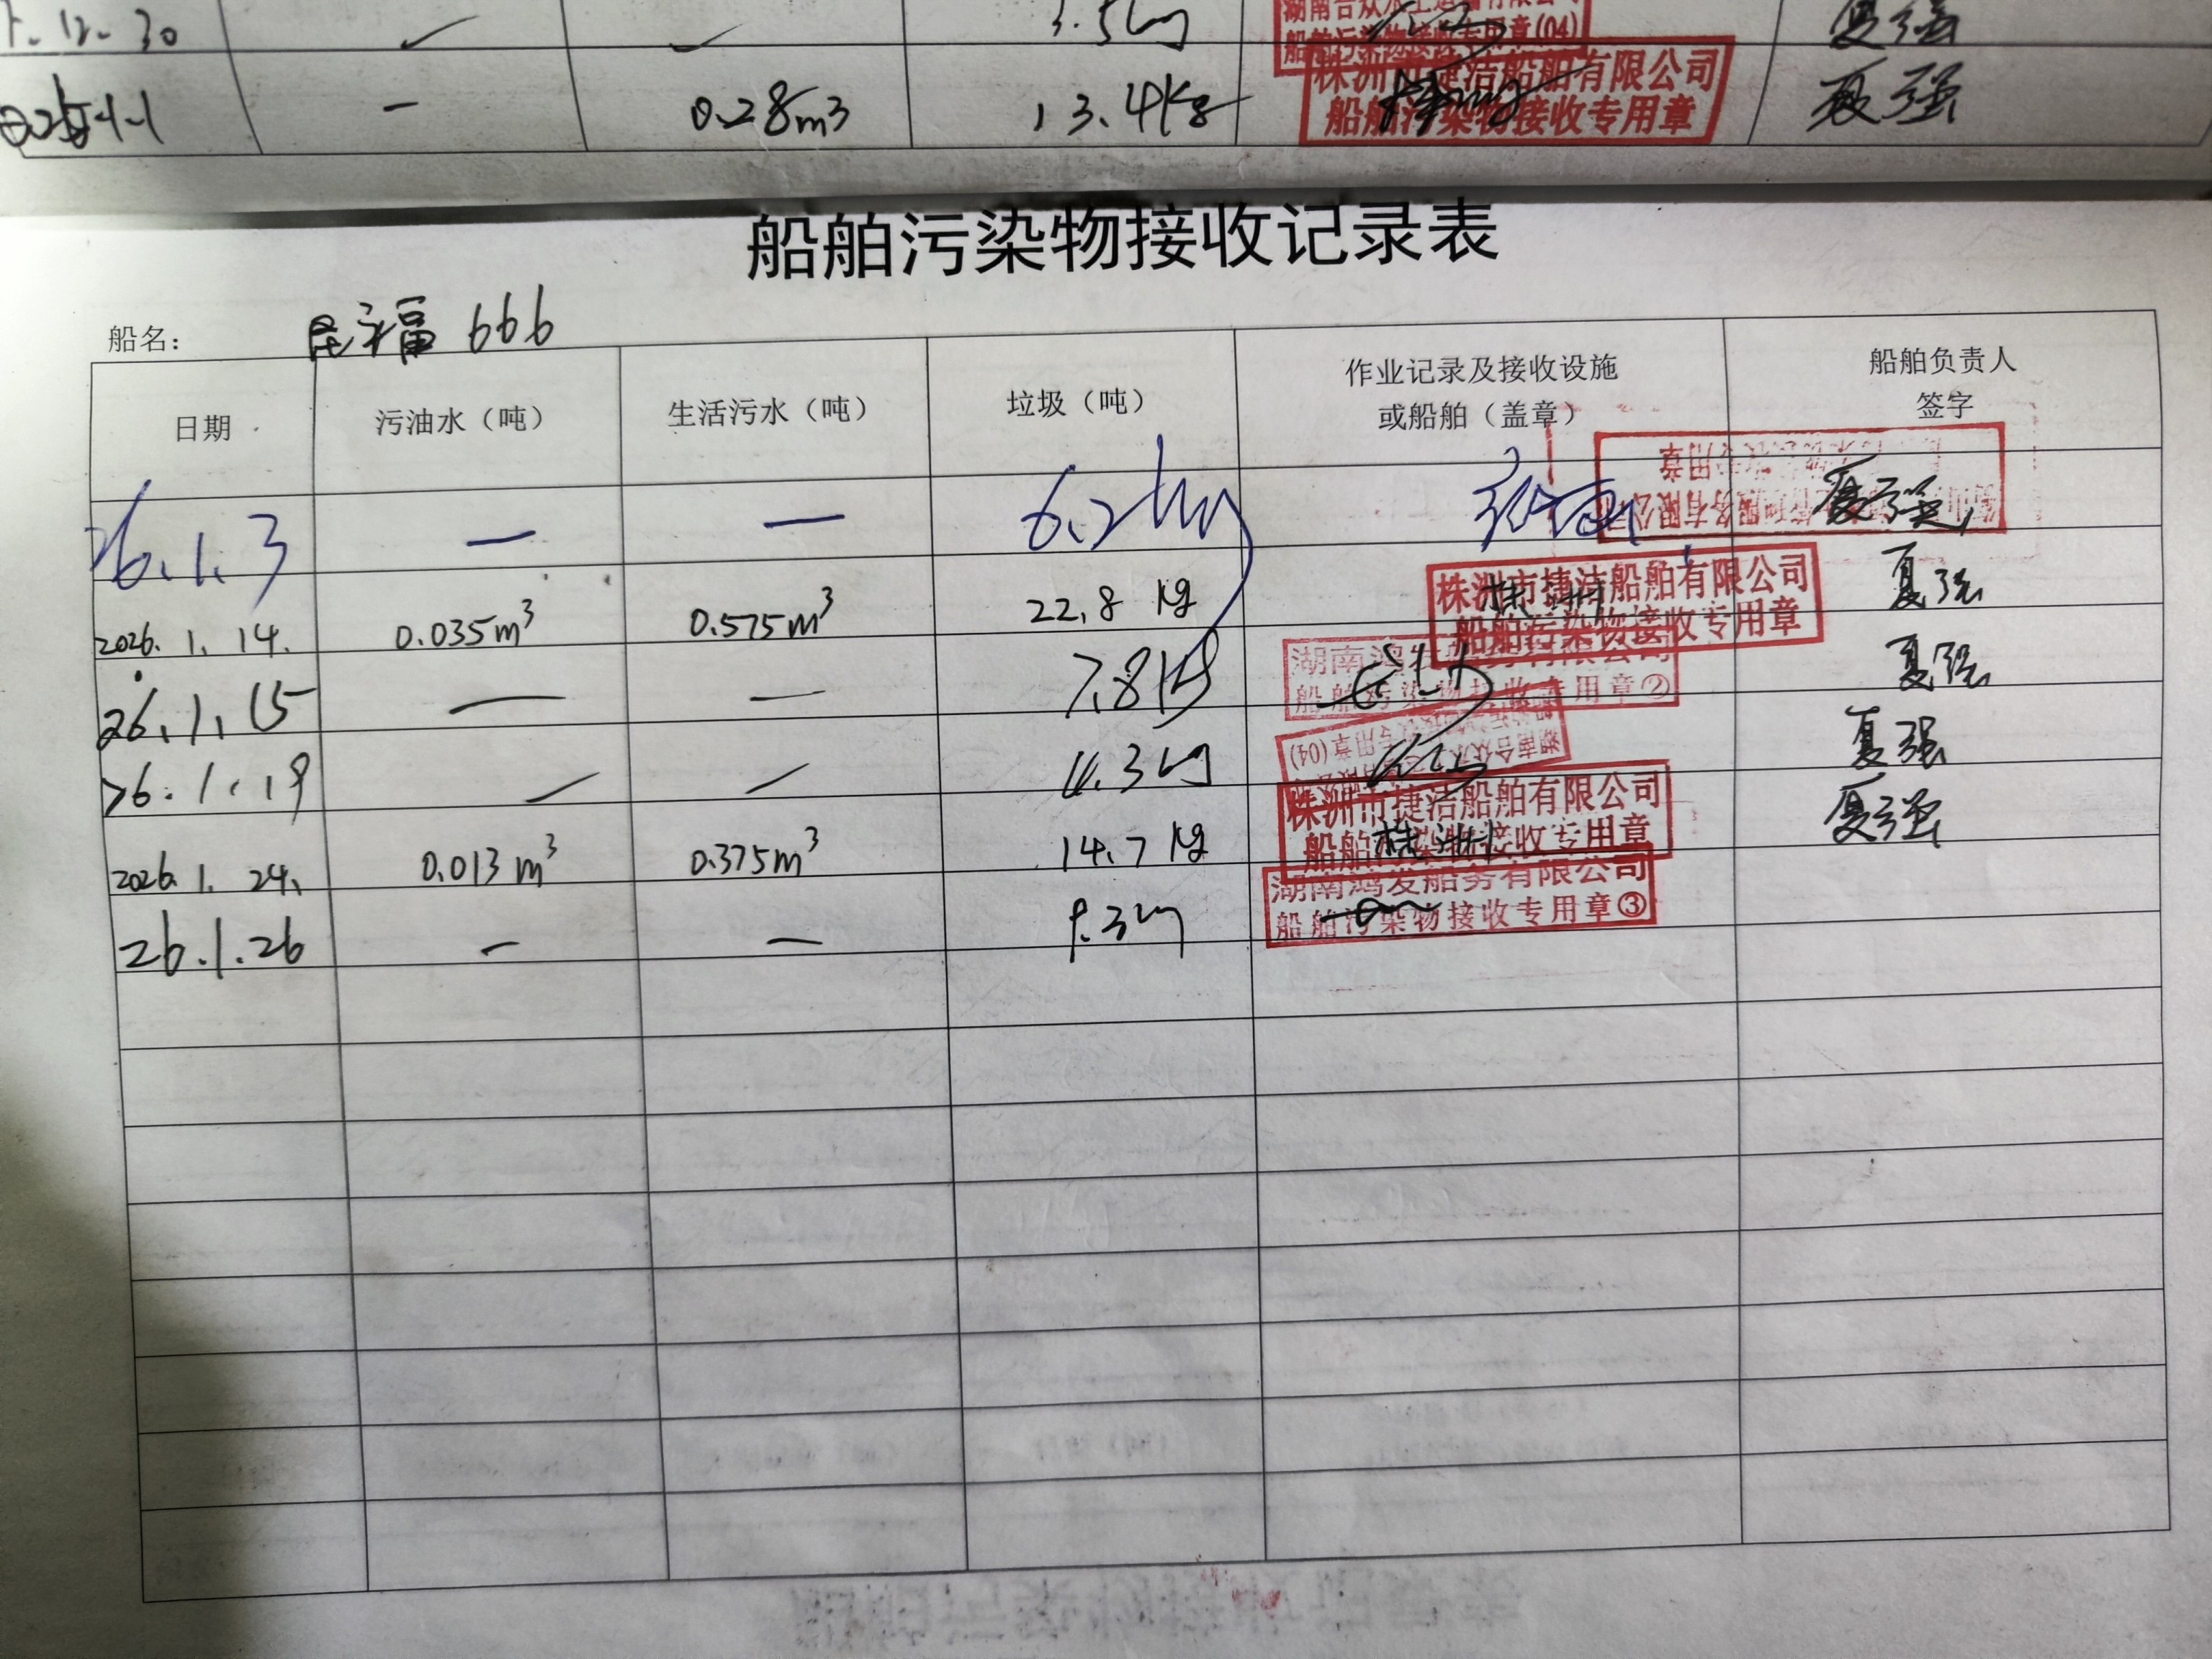 12.30 ✓ ✓ 3.5kg 船舶污染物接收专用章(04) 夏强
— 0.28m3 13.4kg 株洲市捷洁船舶有限公司 夏强
船舶污染物接收专用章
船舶污染物接收记录表
船名： 666
日期 污油水（吨） 生活污水（吨） 垃圾（吨） 作业记录及接收设施 船舶负责人
或船舶（盖章） 签字
26.1.3 — — 6.2kg 夏强
2026.1.14. 0.035m³ 0.575m³ 22.8 kg 株洲市捷洁船舶有限公司 夏强
船舶污染物接收专用章
26.1.15 — — 7.8kg 湖南鸿发船务有限公司 夏强
船舶污染物接收专用章②
26.1.19 — — 夏强
2026.1.24. 0.013m³ 0.375m³ 14.7 kg 株洲市捷洁船舶有限公司 夏强
船舶污染物接收专用章
26.1.26 — — 湖南鸿发船务有限公司
船舶污染物接收专用章③